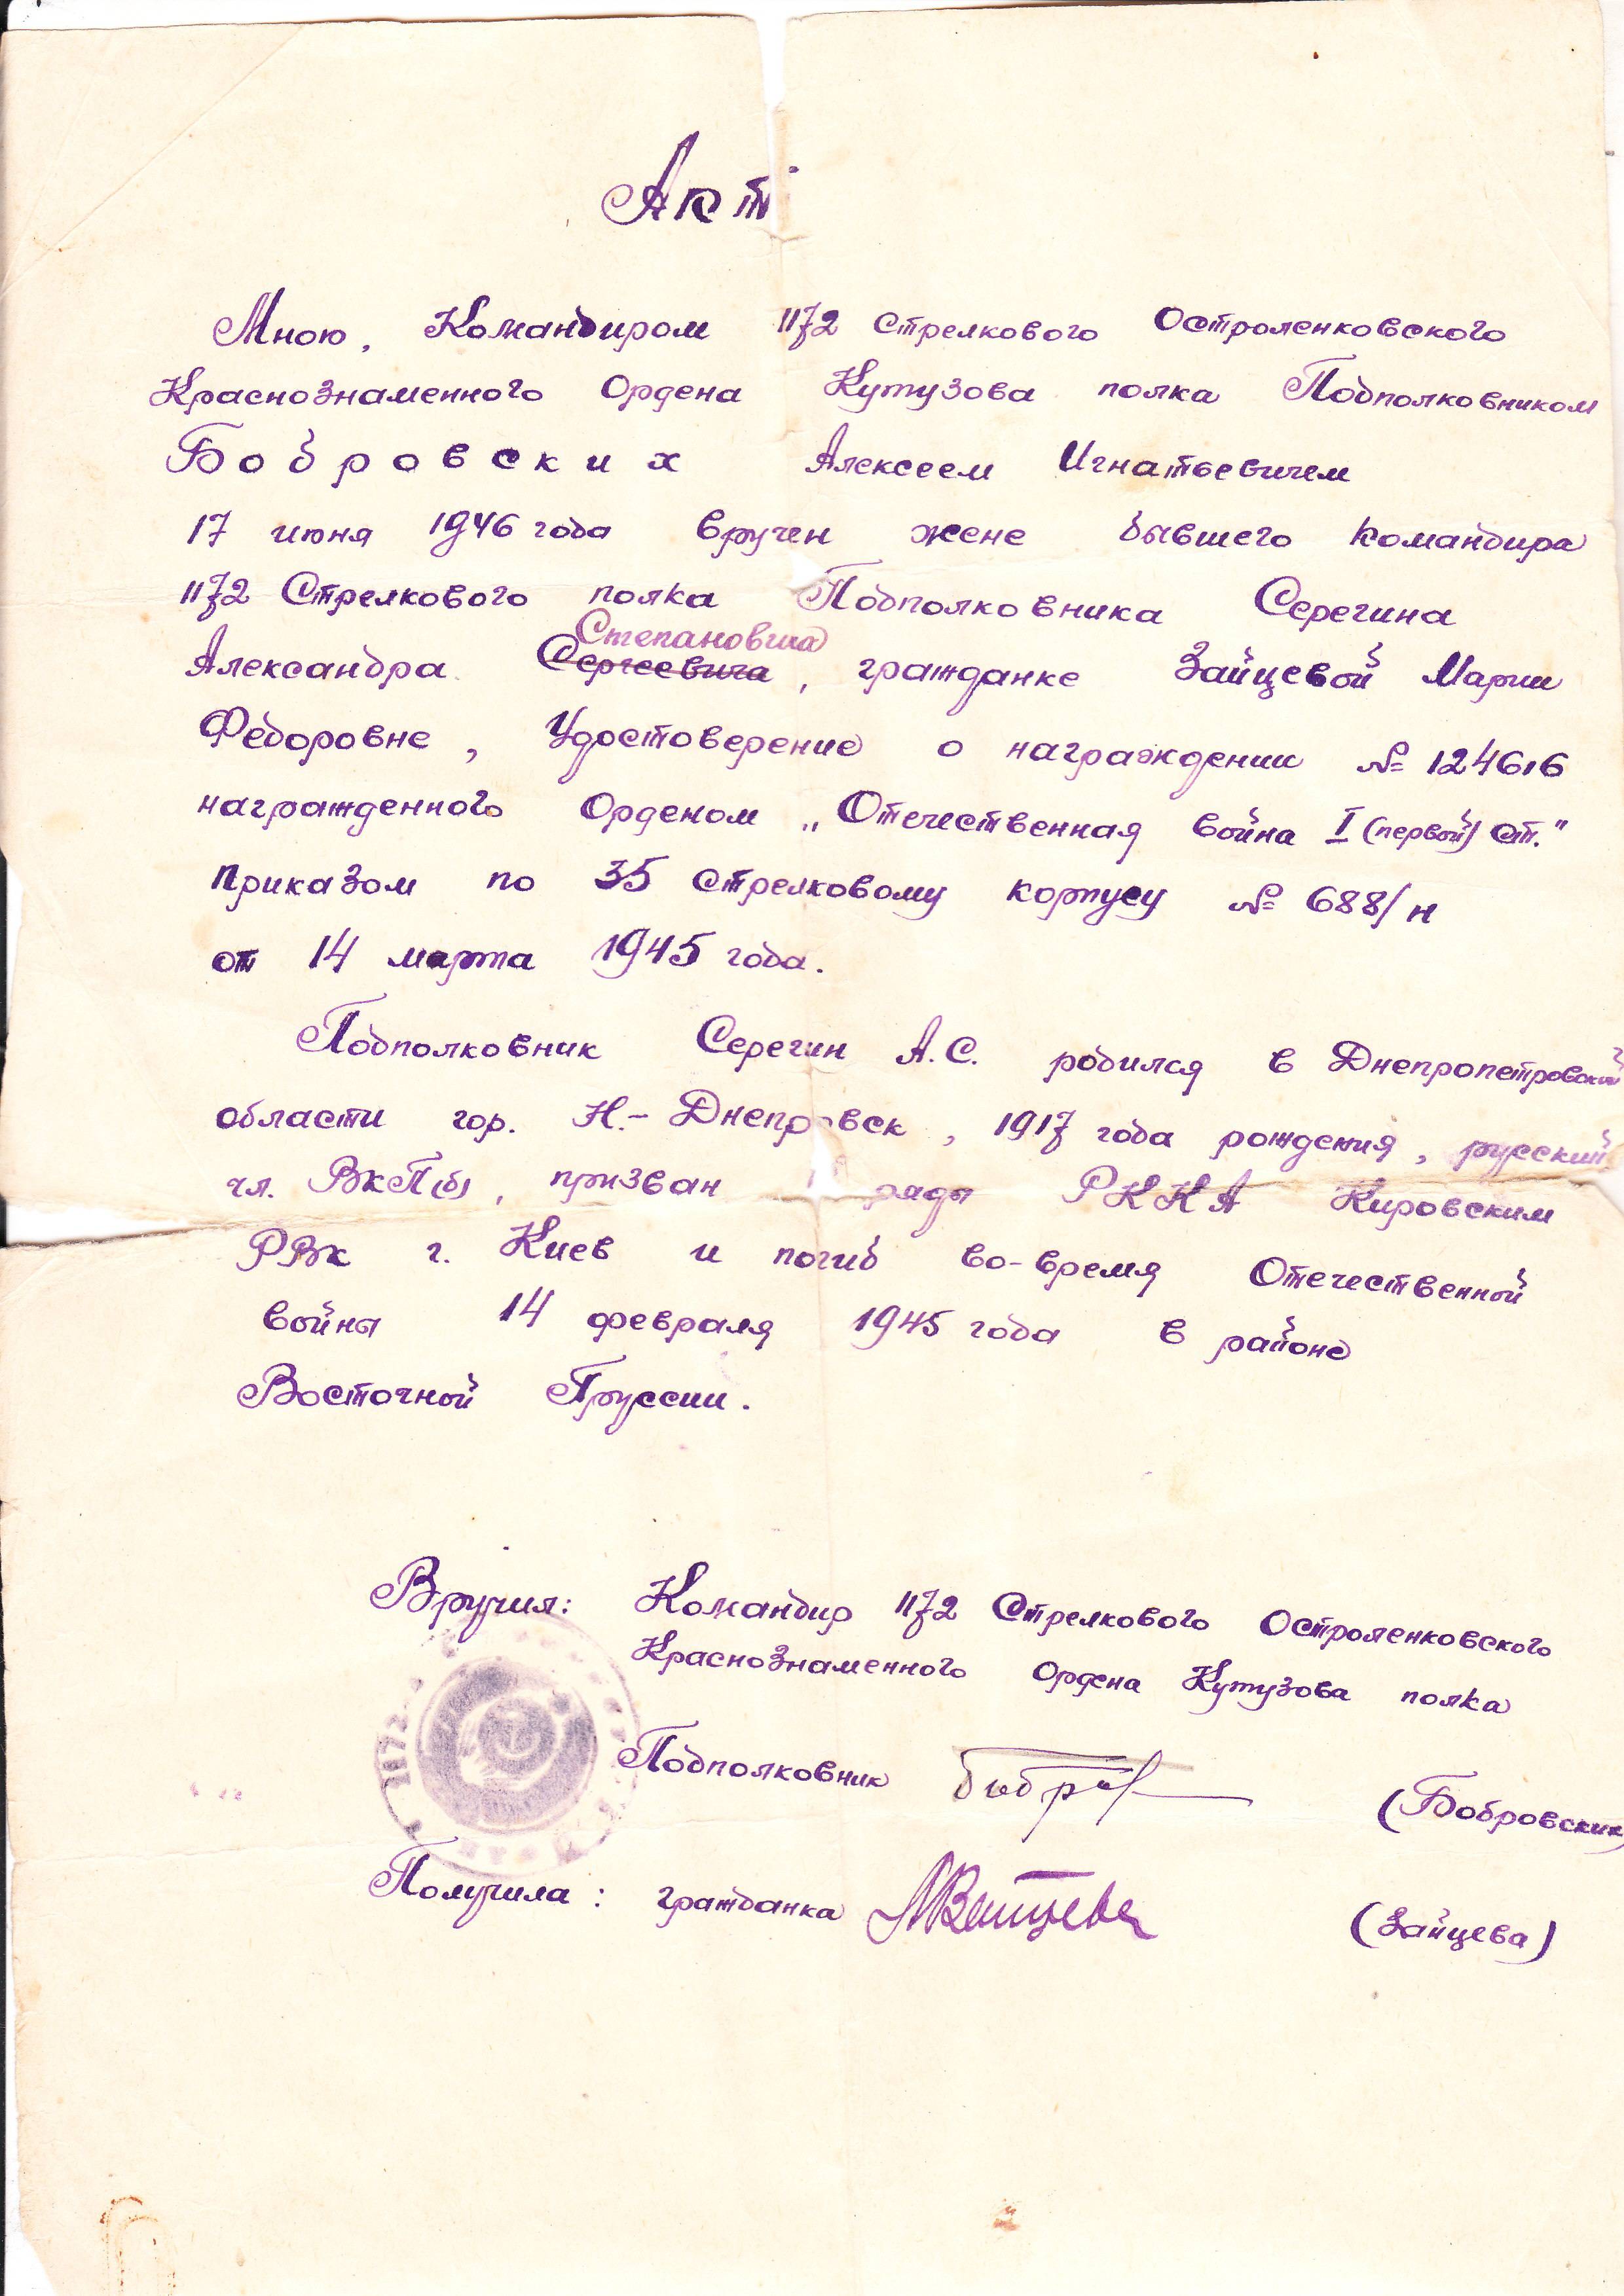 Акт
Мною, Командиром 1172 Стрелкового Остроленковского
Краснознаменного Ордена Кутузова полка Подполковником
Бобровских Алексеем Игнатьевичем
17 июня 1946 года вручен жене бывшего командира
1172 Стрелкового полка Подполковника Серегина
Степановича
Александра Сергеевича, гражданке Зайцевой Марии
Федоровне, Удостоверение о награждении № 124616
награжденного Орденом „Отечественная война I (первой) ст."
приказом по 35 стрелковому корпусу № 688/н
от 14 марта 1945 года.
Подполковник Серегин А.С. родился в Днепропетровской
области гор. Н.-Днепровск, 1917 года рождения, русский
чл. ВкП(б), призван ряды РККА Кировским
РВК г. Киев и погиб во-время Отечественной
война 14 февраля 1945 года в районе
Восточной Пруссии.
Вручил: Командир 1172 Стрелкового Остроленковского
Краснознаменного Ордена Кутузова полка
1172
Подполковник (Бобровских
Получила: гражданка МЗайцева (Зайцева)